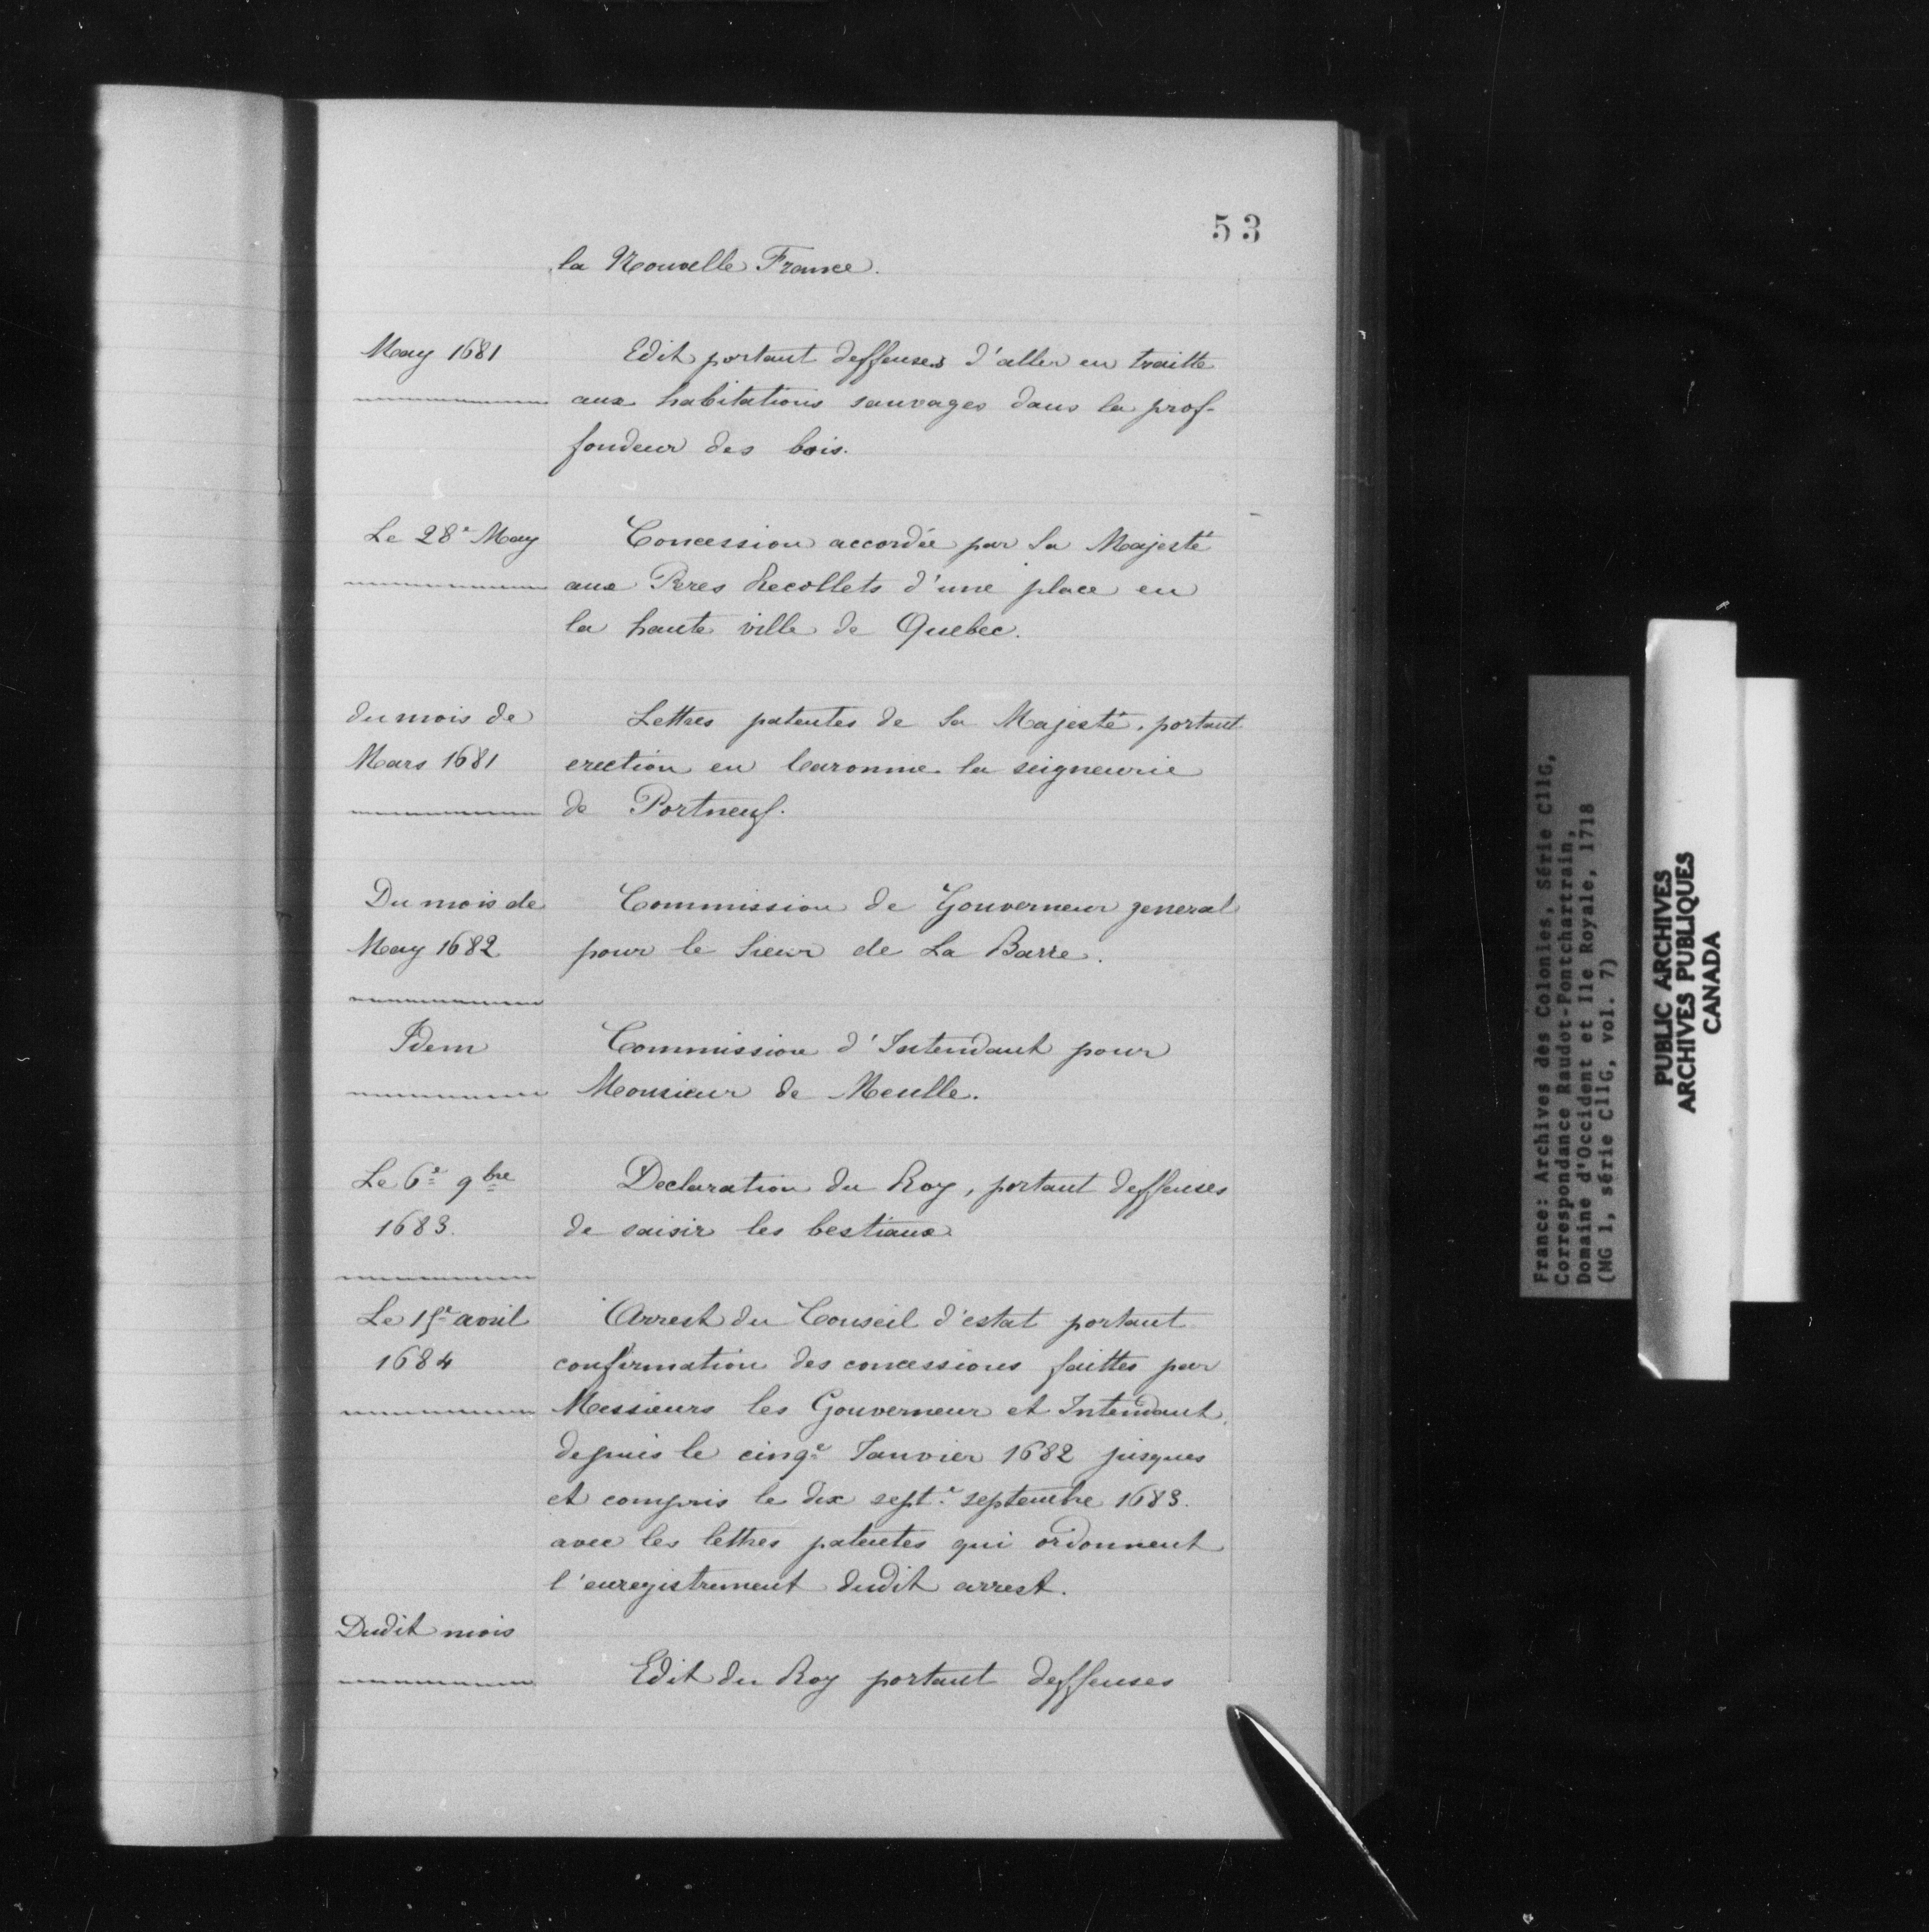 53
la Nouvelle France.
May 1681
Edit portant deffenses d'aller en traitte
aux habitations sauvages dans la prof-
fondeur des bois.
Le 28e May
Concession accordée par Sa Majesté
aux Peres Recollets d'une place en
la haute ville de Quebec.
du mois de
Mars 1681
Lettres patentes de Sa Majesté, portant
erection en baronnie la seigneurie
de Portneuf.
Du mois de
May 1682
Commission de Gouverneur general
pour le Sieur de La Barre.
Idem
Commission d'Intendant pour
Monsieur de Meulle.
Le 6e 9bre
1683.
Declaration du Roy, portant deffenses
de saisir les bestiaux
Le 15e avril
1684
Arrest du Conseil d'estat portant
confirmation des concessions faittes par
Messieurs les Gouverneur et Intendant,
depuis le cinqe Janvier 1682 jusques
et compris le dix septe septembre 1683.
avec les lettres patentes qui ordonnent
l'enregistrement dudit arrest.
Dudit mois
Edit du Roy portant deffenses
France: Archives des Colonies, Série C11G,
Correspondance Raudot-Pontchartrain,
Domaine d'Occident et Ile Royale, 1718
(MG 1, série C11G, vol. 7)
PUBLIC ARCHIVES
ARCHIVES PUBLIQUES
CANADA